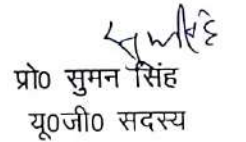 प्रो0 सुमन सिंह
यू0जी0 सदस्य